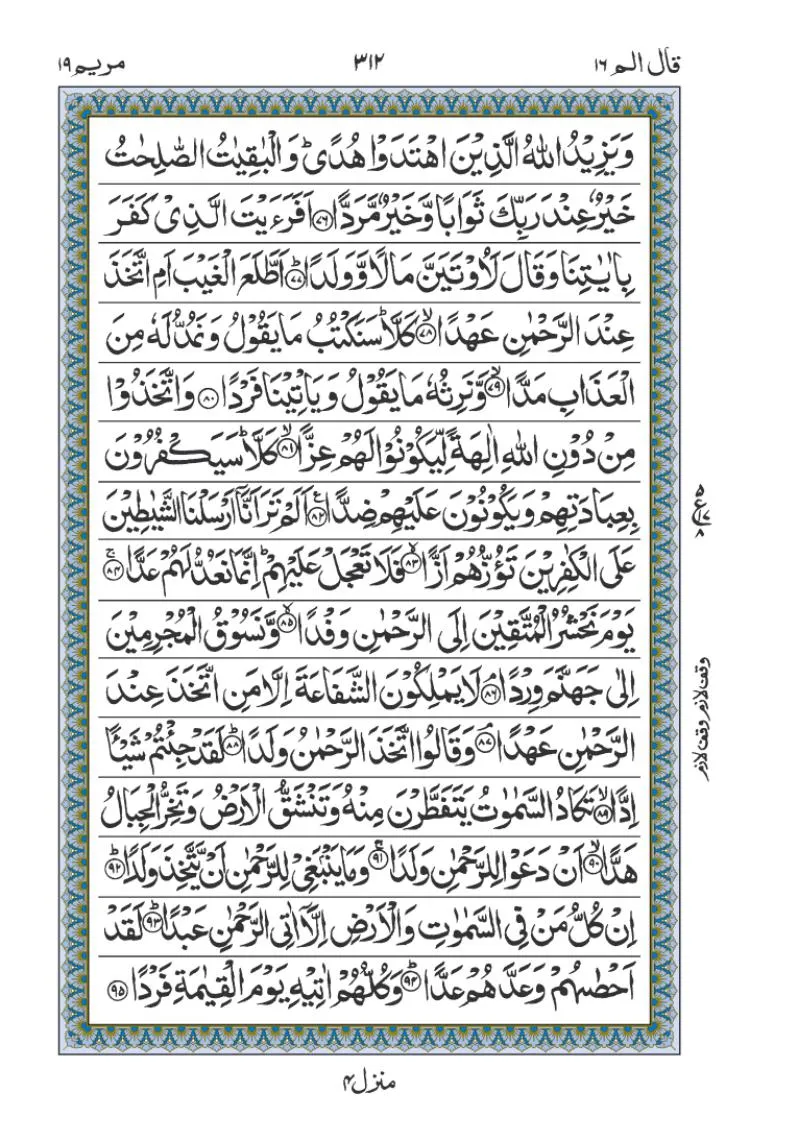 قال الم ١٦ ٣١٢ مريم ١٩
وَيَزِيْدُ اللّٰهُ الَّذِيْنَ اهْتَدَوْا هُدًى ؕ وَالْبٰقِيٰتُ الصّٰلِحٰتُ
خَيْرٌ عِنْدَ رَبِّكَ ثَوَابًا وَّخَيْرٌ مَّرَدًّا ﴿۷۶﴾ اَفَرَءَيْتَ الَّذِىْ كَفَرَ
بِاٰيٰتِنَا وَقَالَ لَاُوْتَيَنَّ مَالًا وَّوَلَدًا ؕ﴿۷۷﴾ اَطَّلَعَ الْغَيْبَ اَمِ اتَّخَذَ
عِنْدَ الرَّحْمٰنِ عَهْدًا ۙ﴿۷۸﴾ كَلَّا ؕ سَنَكْتُبُ مَا يَقُوْلُ وَنَمُدُّ لَهٗ مِنَ
الْعَذَابِ مَدًّا ۙ﴿۷۹﴾ وَّنَرِثُهٗ مَا يَقُوْلُ وَيَاْتِيْنَا فَرْدًا ﴿۸۰﴾ وَاتَّخَذُوْا
مِنْ دُوْنِ اللّٰهِ اٰلِهَةً لِّيَكُوْنُوْا لَهُمْ عِزًّا ۙ﴿۸۱﴾ كَلَّا ؕ سَيَكْفُرُوْنَ
بِعِبَادَتِهِمْ وَيَكُوْنُوْنَ عَلَيْهِمْ ضِدًّا ﴿۸۲﴾ اَلَمْ تَرَ اَنَّاۤ اَرْسَلْنَا الشَّيٰطِيْنَ
عَلَى الْكٰفِرِيْنَ تَؤُزُّهُمْ اَزًّا ۙ﴿۸۳﴾ فَلَا تَعْجَلْ عَلَيْهِمْ ؕ اِنَّمَا نَعُدُّ لَهُمْ عَدًّا ۚ﴿۸۴﴾
يَوْمَ نَحْشُرُ الْمُتَّقِيْنَ اِلَى الرَّحْمٰنِ وَفْدًا ۙ﴿۸۵﴾ وَّنَسُوْقُ الْمُجْرِمِيْنَ
اِلٰى جَهَنَّمَ وِرْدًا ۘ﴿۸۶﴾ لَا يَمْلِكُوْنَ الشَّفَاعَةَ اِلَّا مَنِ اتَّخَذَ عِنْدَ
الرَّحْمٰنِ عَهْدًا ۘ﴿۸۷﴾ وَقَالُوا اتَّخَذَ الرَّحْمٰنُ وَلَدًا ؕ﴿۸۸﴾ لَقَدْ جِئْتُمْ شَيْـًٔا
اِدًّا ۙ﴿۸۹﴾ تَكَادُ السَّمٰوٰتُ يَتَفَطَّرْنَ مِنْهُ وَتَنْشَقُّ الْاَرْضُ وَتَخِرُّ الْجِبَالُ
هَدًّا ۙ﴿۹۰﴾ اَنْ دَعَوْا لِلرَّحْمٰنِ وَلَدًا ۚ﴿۹۱﴾ وَمَا يَنْۢبَغِىْ لِلرَّحْمٰنِ اَنْ يَّتَّخِذَ وَلَدًا ؕ﴿۹۲﴾
اِنْ كُلُّ مَنْ فِى السَّمٰوٰتِ وَالْاَرْضِ اِلَّاۤ اٰتِى الرَّحْمٰنِ عَبْدًا ؕ﴿۹۳﴾ لَقَدْ
اَحْصٰىهُمْ وَعَدَّهُمْ عَدًّا ؕ﴿۹۴﴾ وَكُلُّهُمْ اٰتِيْهِ يَوْمَ الْقِيٰمَةِ فَرْدًا ﴿۹۵﴾
وقف لازم وقف لازم
منزل ۴